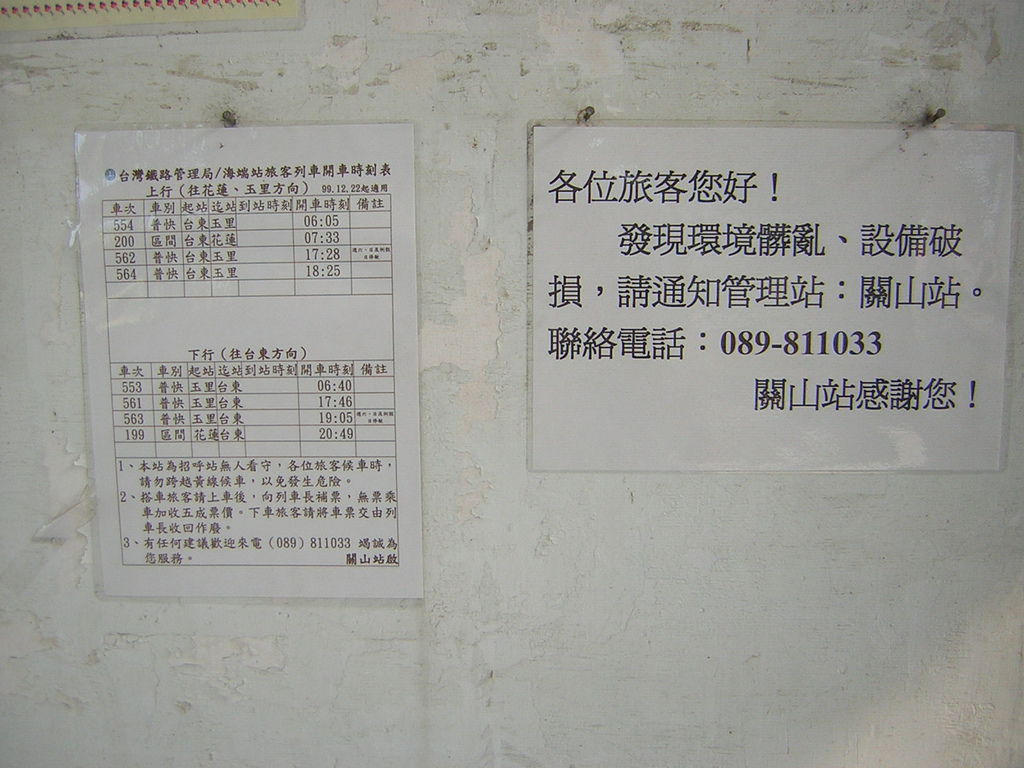 台灣鐵路管理局/海端站旅客列車開車時刻表
上行(往花蓮、玉里方向) 99.12.22起適用
車次 車別 起站 迄站 到站時刻 開車時刻 備註
554 普快 台東 玉里 06:05
200 區間 台東 花蓮 07:33
562 普快 台東 玉里 17:28
564 普快 台東 玉里 18:25
下行(往台東方向)
車次 車別 起站 迄站 到站時刻 開車時刻 備註
553 普快 玉里 台東 06:40
561 普快 玉里 台東 17:46
563 普快 玉里 台東 19:05
199 區間 花蓮 台東 20:49
1、本站為招呼站無人看守,各位旅客候車時,
請勿跨越黃線候車,以免發生危險。
2、搭車旅客請上車後,向列車長補票,無票乘
車加收五成票價。下車旅客請將車票交由列
車長收回作廢。
3、有任何建議歡迎來電(089)811033 竭誠為
您服務。 關山站啟
各位旅客您好!
發現環境髒亂、設備破
損,請通知管理站:關山站。
聯絡電話:089-811033
關山站感謝您!